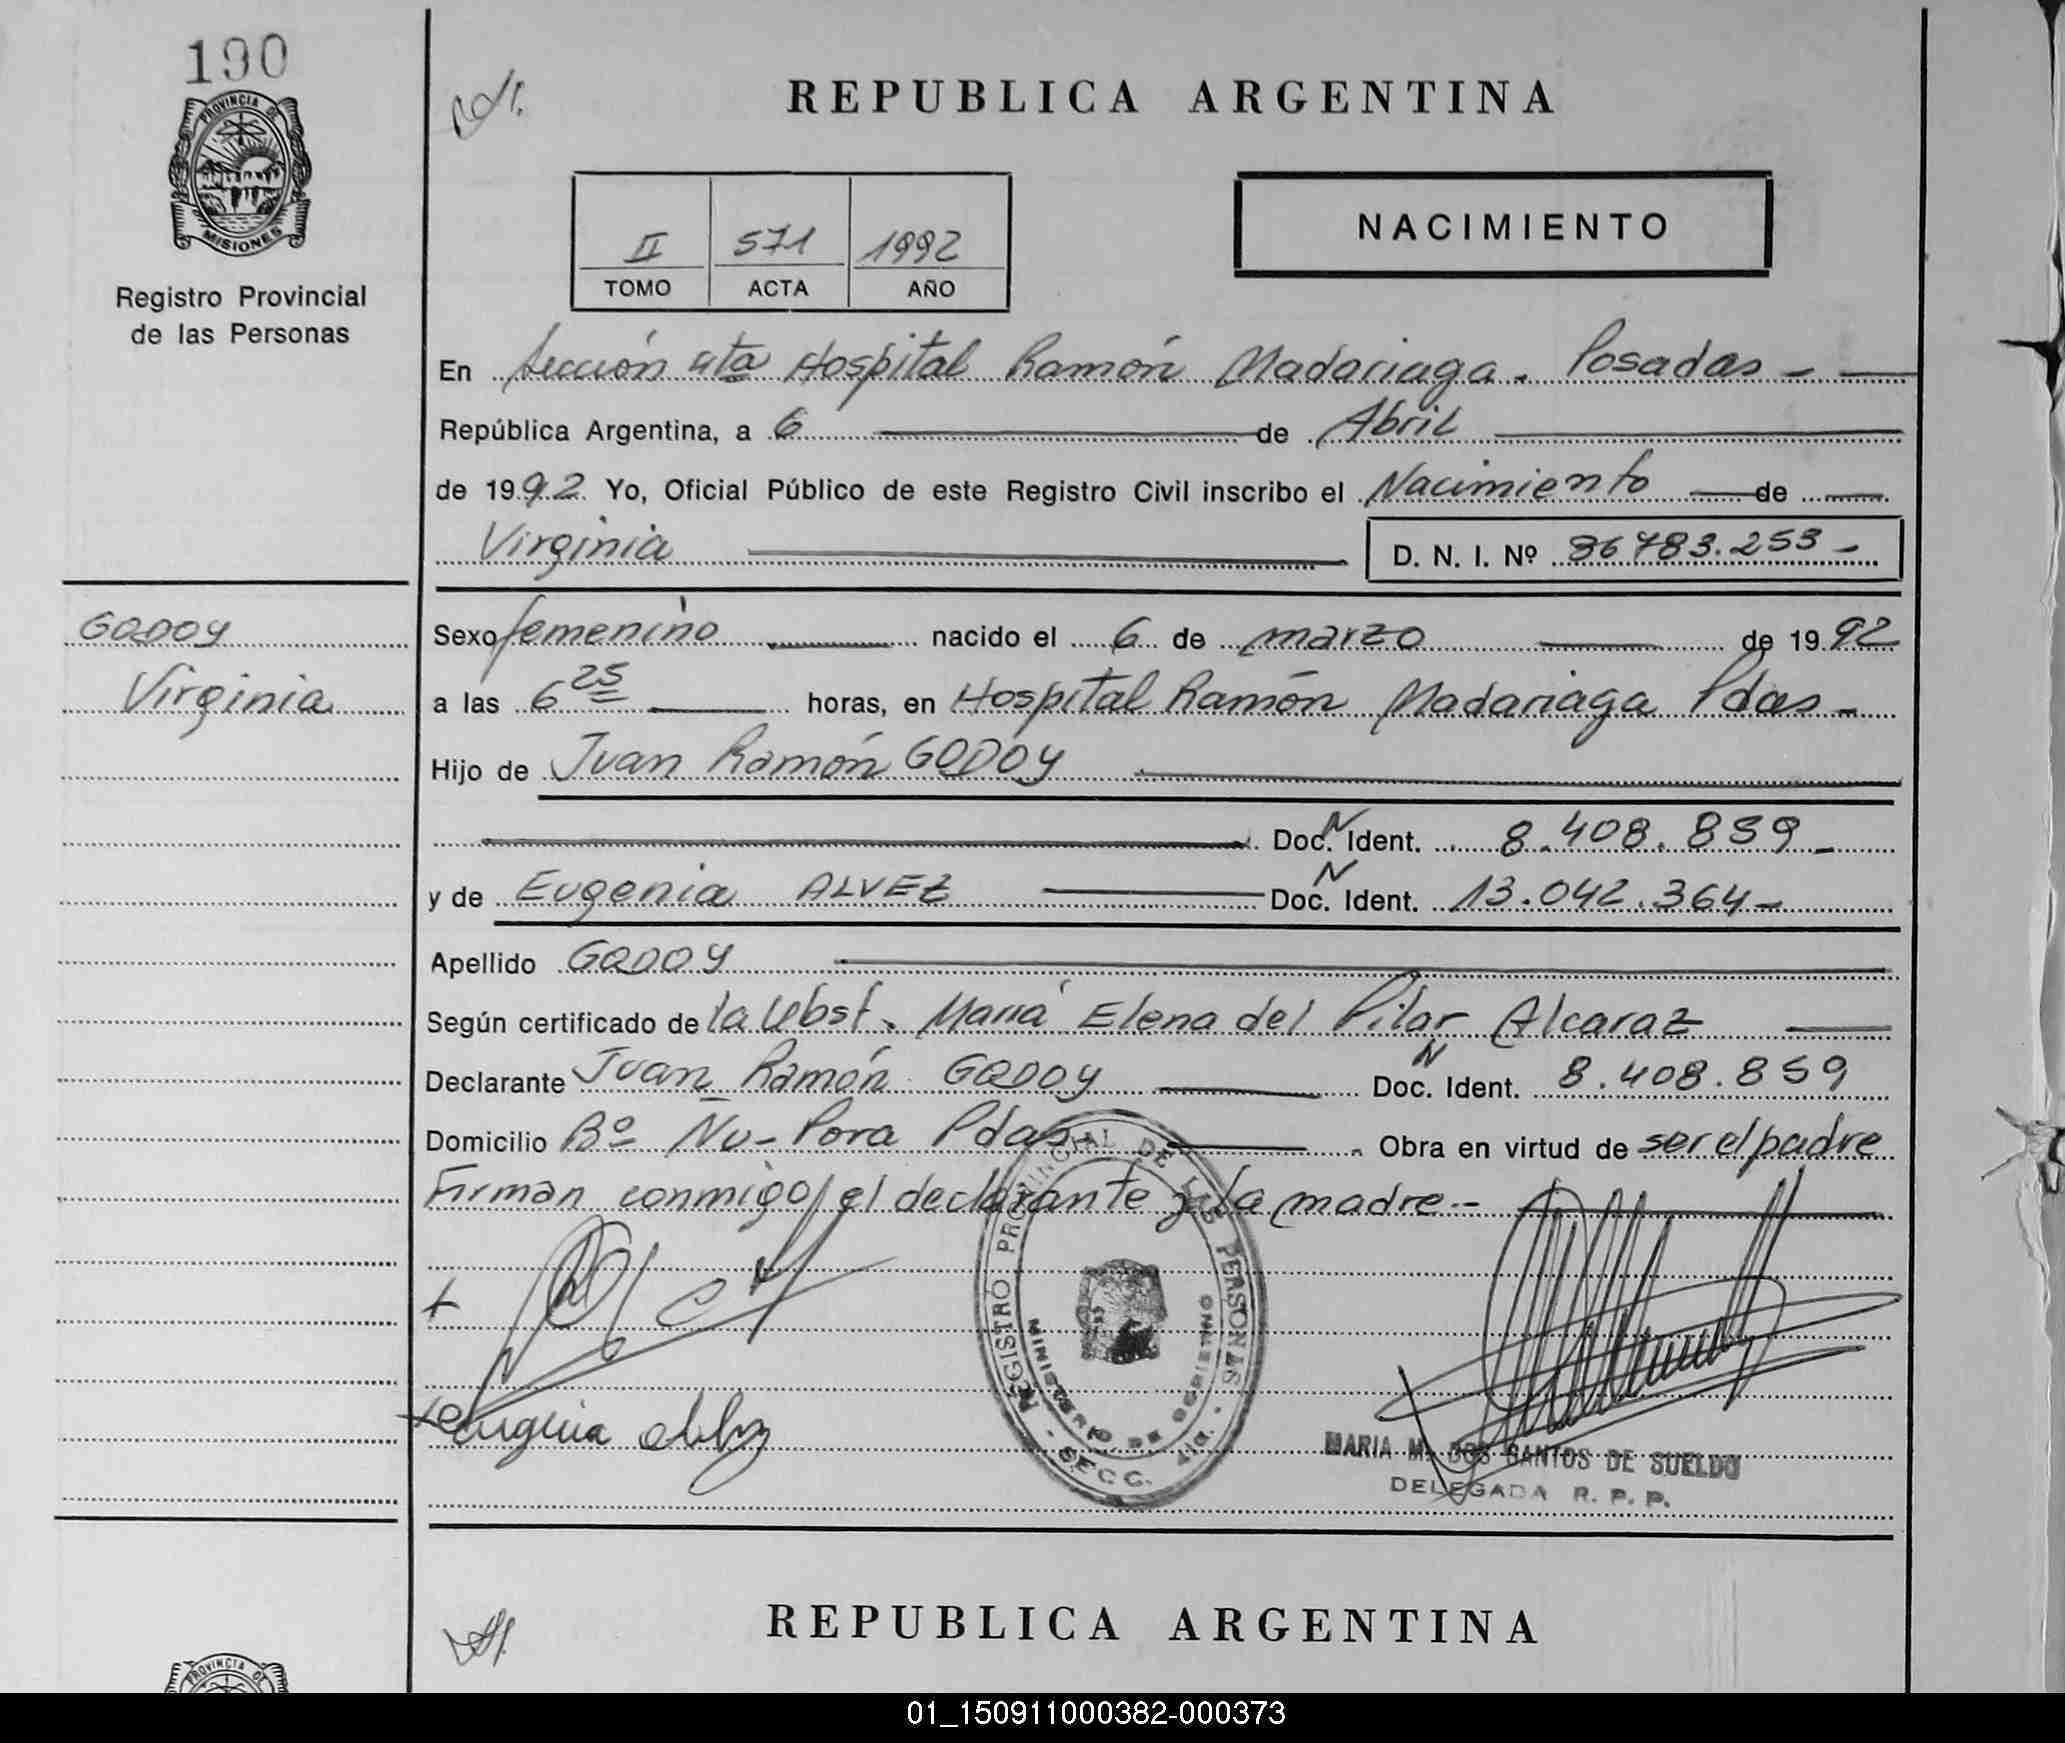 190
PROVINCIA DE
MISIONES
Registro Provincial
de las Personas
REPUBLICA ARGENTINA
II 571 1992
TOMO ACTA AÑO
NACIMIENTO
En Sección 4ta Hospital Ramón Madariaga. Posadas -
República Argentina, a 6 de Abril
de 1992 Yo, Oficial Público de este Registro Civil inscribo el Nacimiento de
Virginia D. N. I. Nº 36783.253-
GODOY
Virginia
Sexo femenino nacido el 6 de marzo de 1992
a las 6 25 horas, en Hospital Ramón Madariaga Pdas-
Hijo de Juan Ramón GODOY
Doc. N Ident. 8.408.859-
y de Eugenia ALVEZ Doc. N Ident. 13.042.364-
Apellido GODOY
Según certificado de la Obst. María Elena del Pilar Alcaraz
Declarante Juan Ramón GODOY Doc. N Ident. 8.408.859
Domicilio Bº Ñu-Pora Pdas Obra en virtud de ser el padre
Firman conmigo el declarante y la madre.-
REGISTRO PROVINCIAL DE LAS PERSONAS
MINISTERIO DE GOBIERNO
- SECC. 4ta. -
Eugenia Alvez
MARIA M. DOS SANTOS DE SUELDO
DELEGADA R. P. P.
REPUBLICA ARGENTINA
PROVINCIA DE
01_150911000382-000373